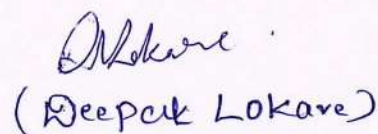 DNLokare.
(Deepak Lokare)